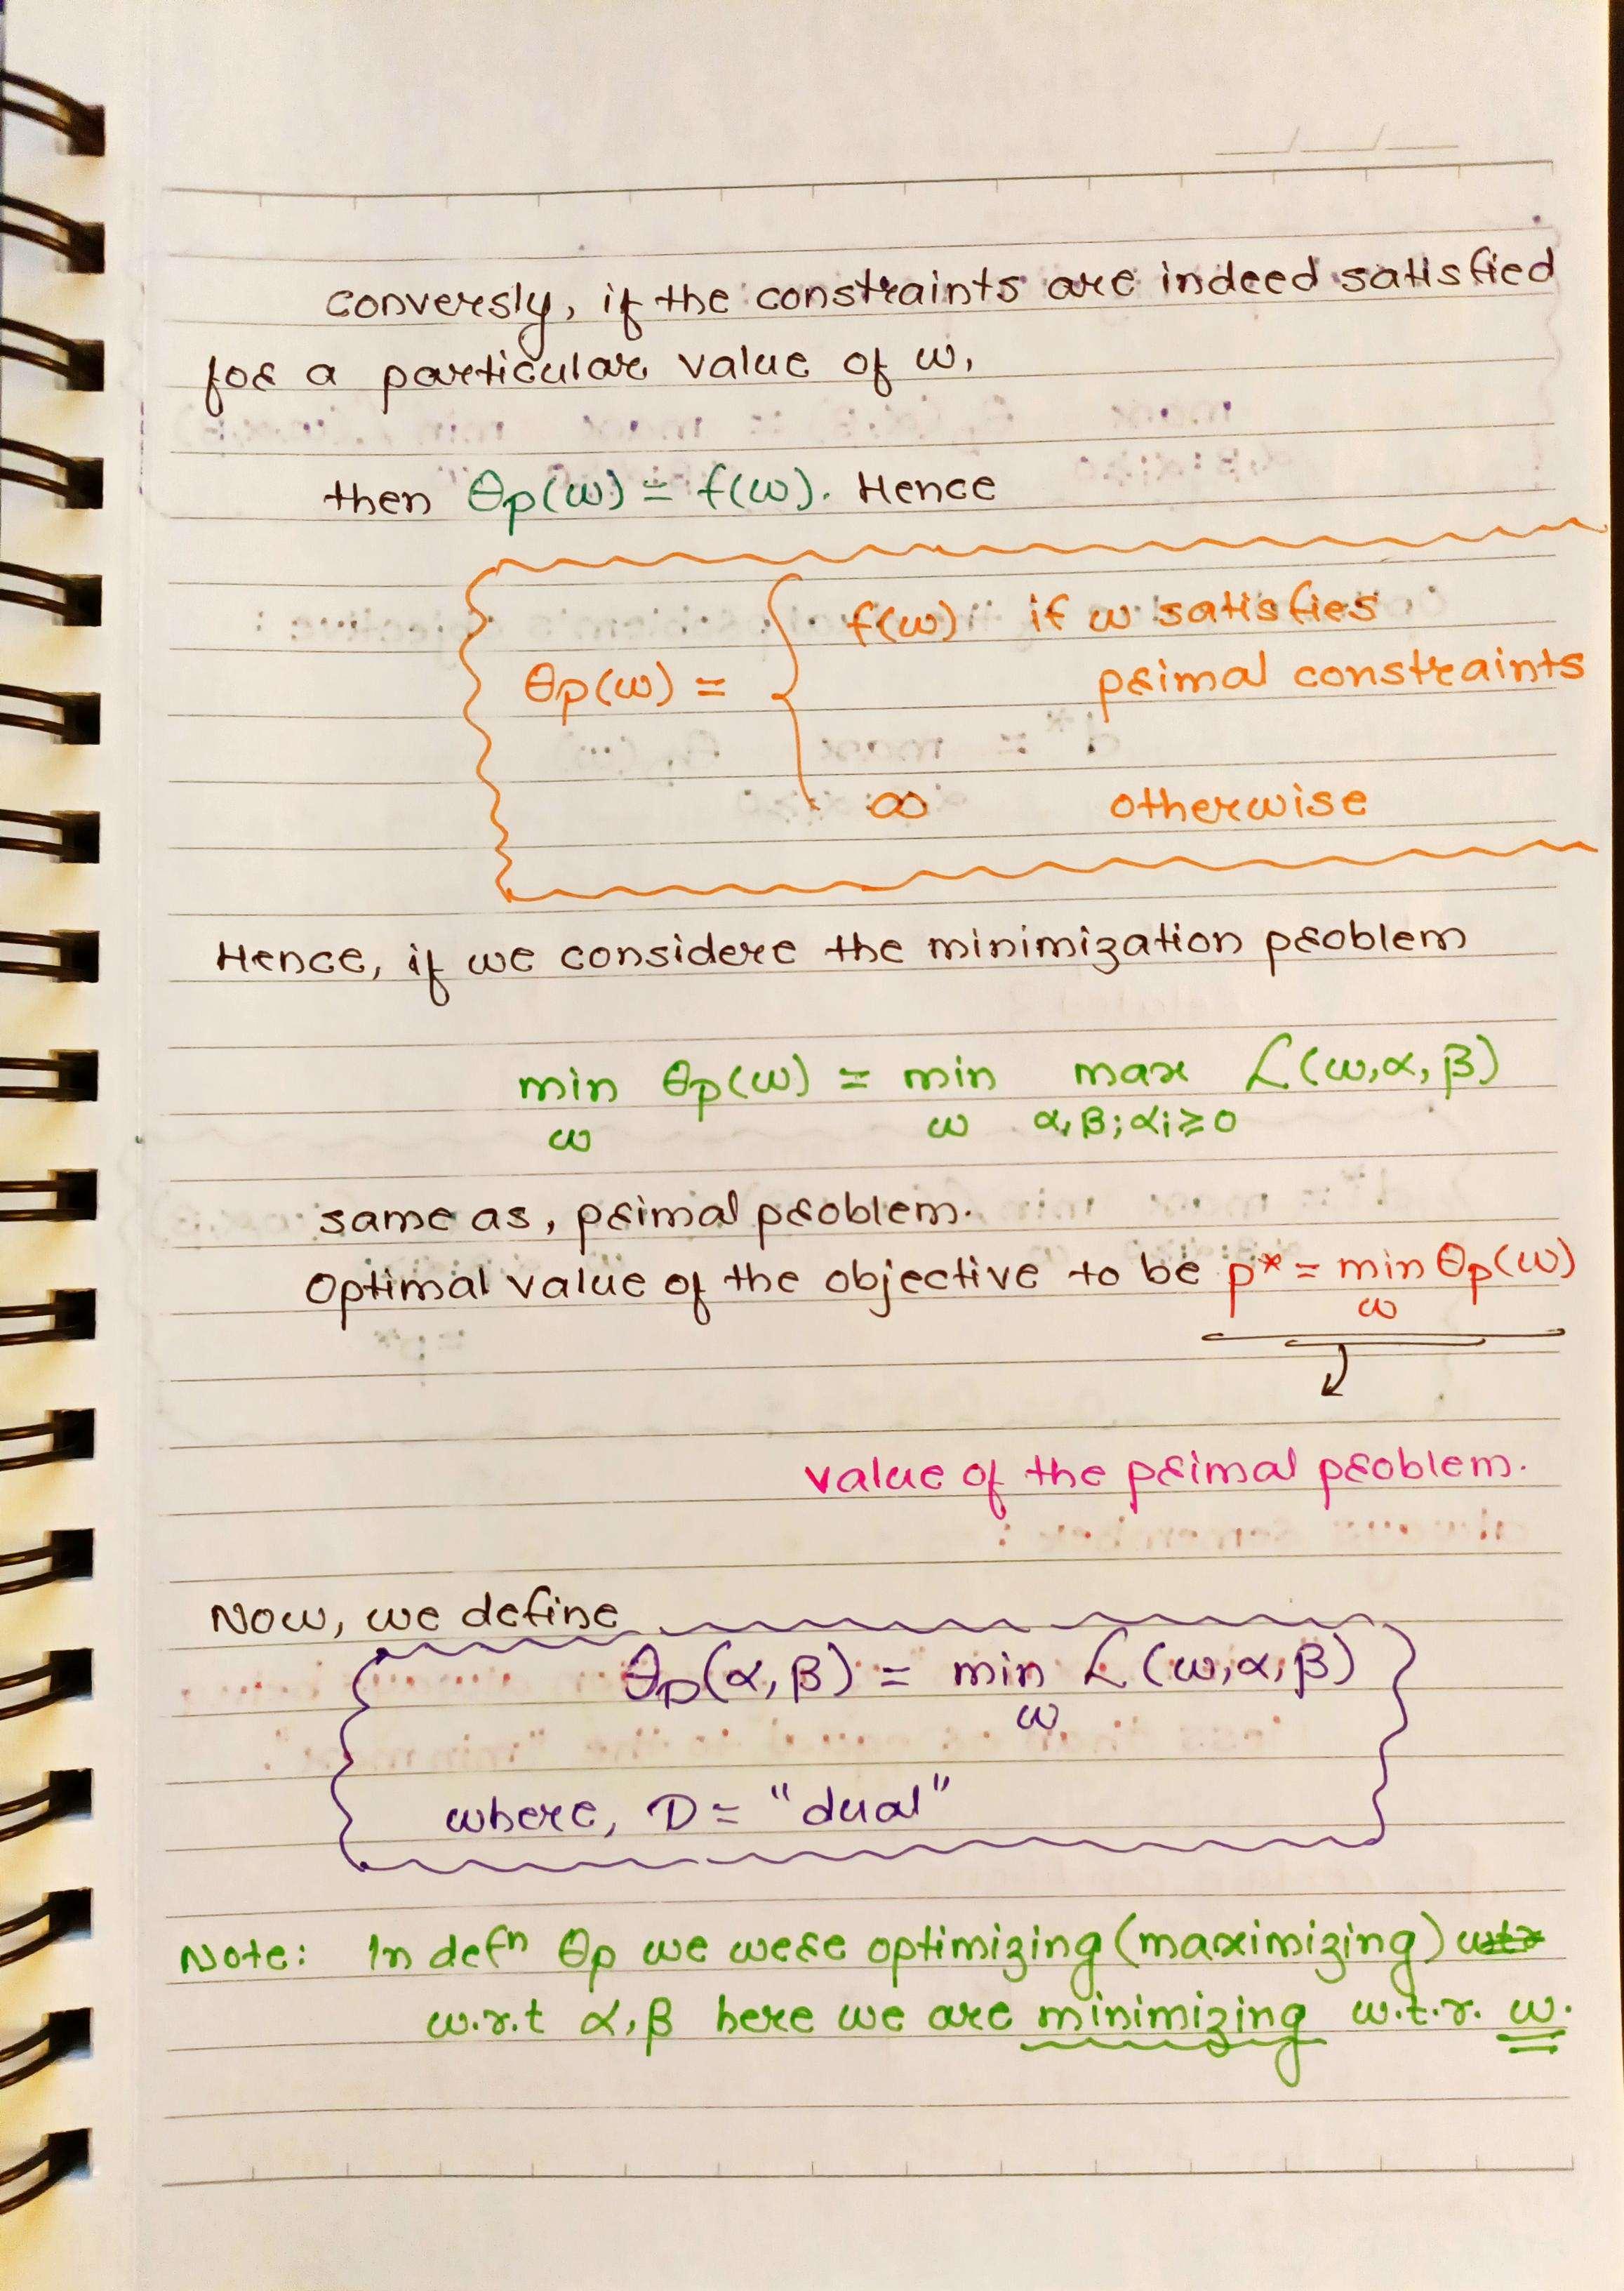 conversly, if the constraints are indeed satisfied
for a particular value of w,
then θp(w) = f(w). Hence
θp(w) = { f(w) if w satisfies
primal constraints
∞ otherwise
Hence, if we considere the minimization problem
min θp(w) = min max L(w,α,β)
w w α,β;αi≥0
same as, primal problem.
Optimal value of the objective to be p* = min θp(w)
w
value of the primal problem.
Now, we define
θD(α,β) = min L(w,α,β)
w
where, D = "dual"
Note: In defⁿ θp we were optimizing (maximizing)
w.r.t α,β here we are minimizing w.t.r. w.